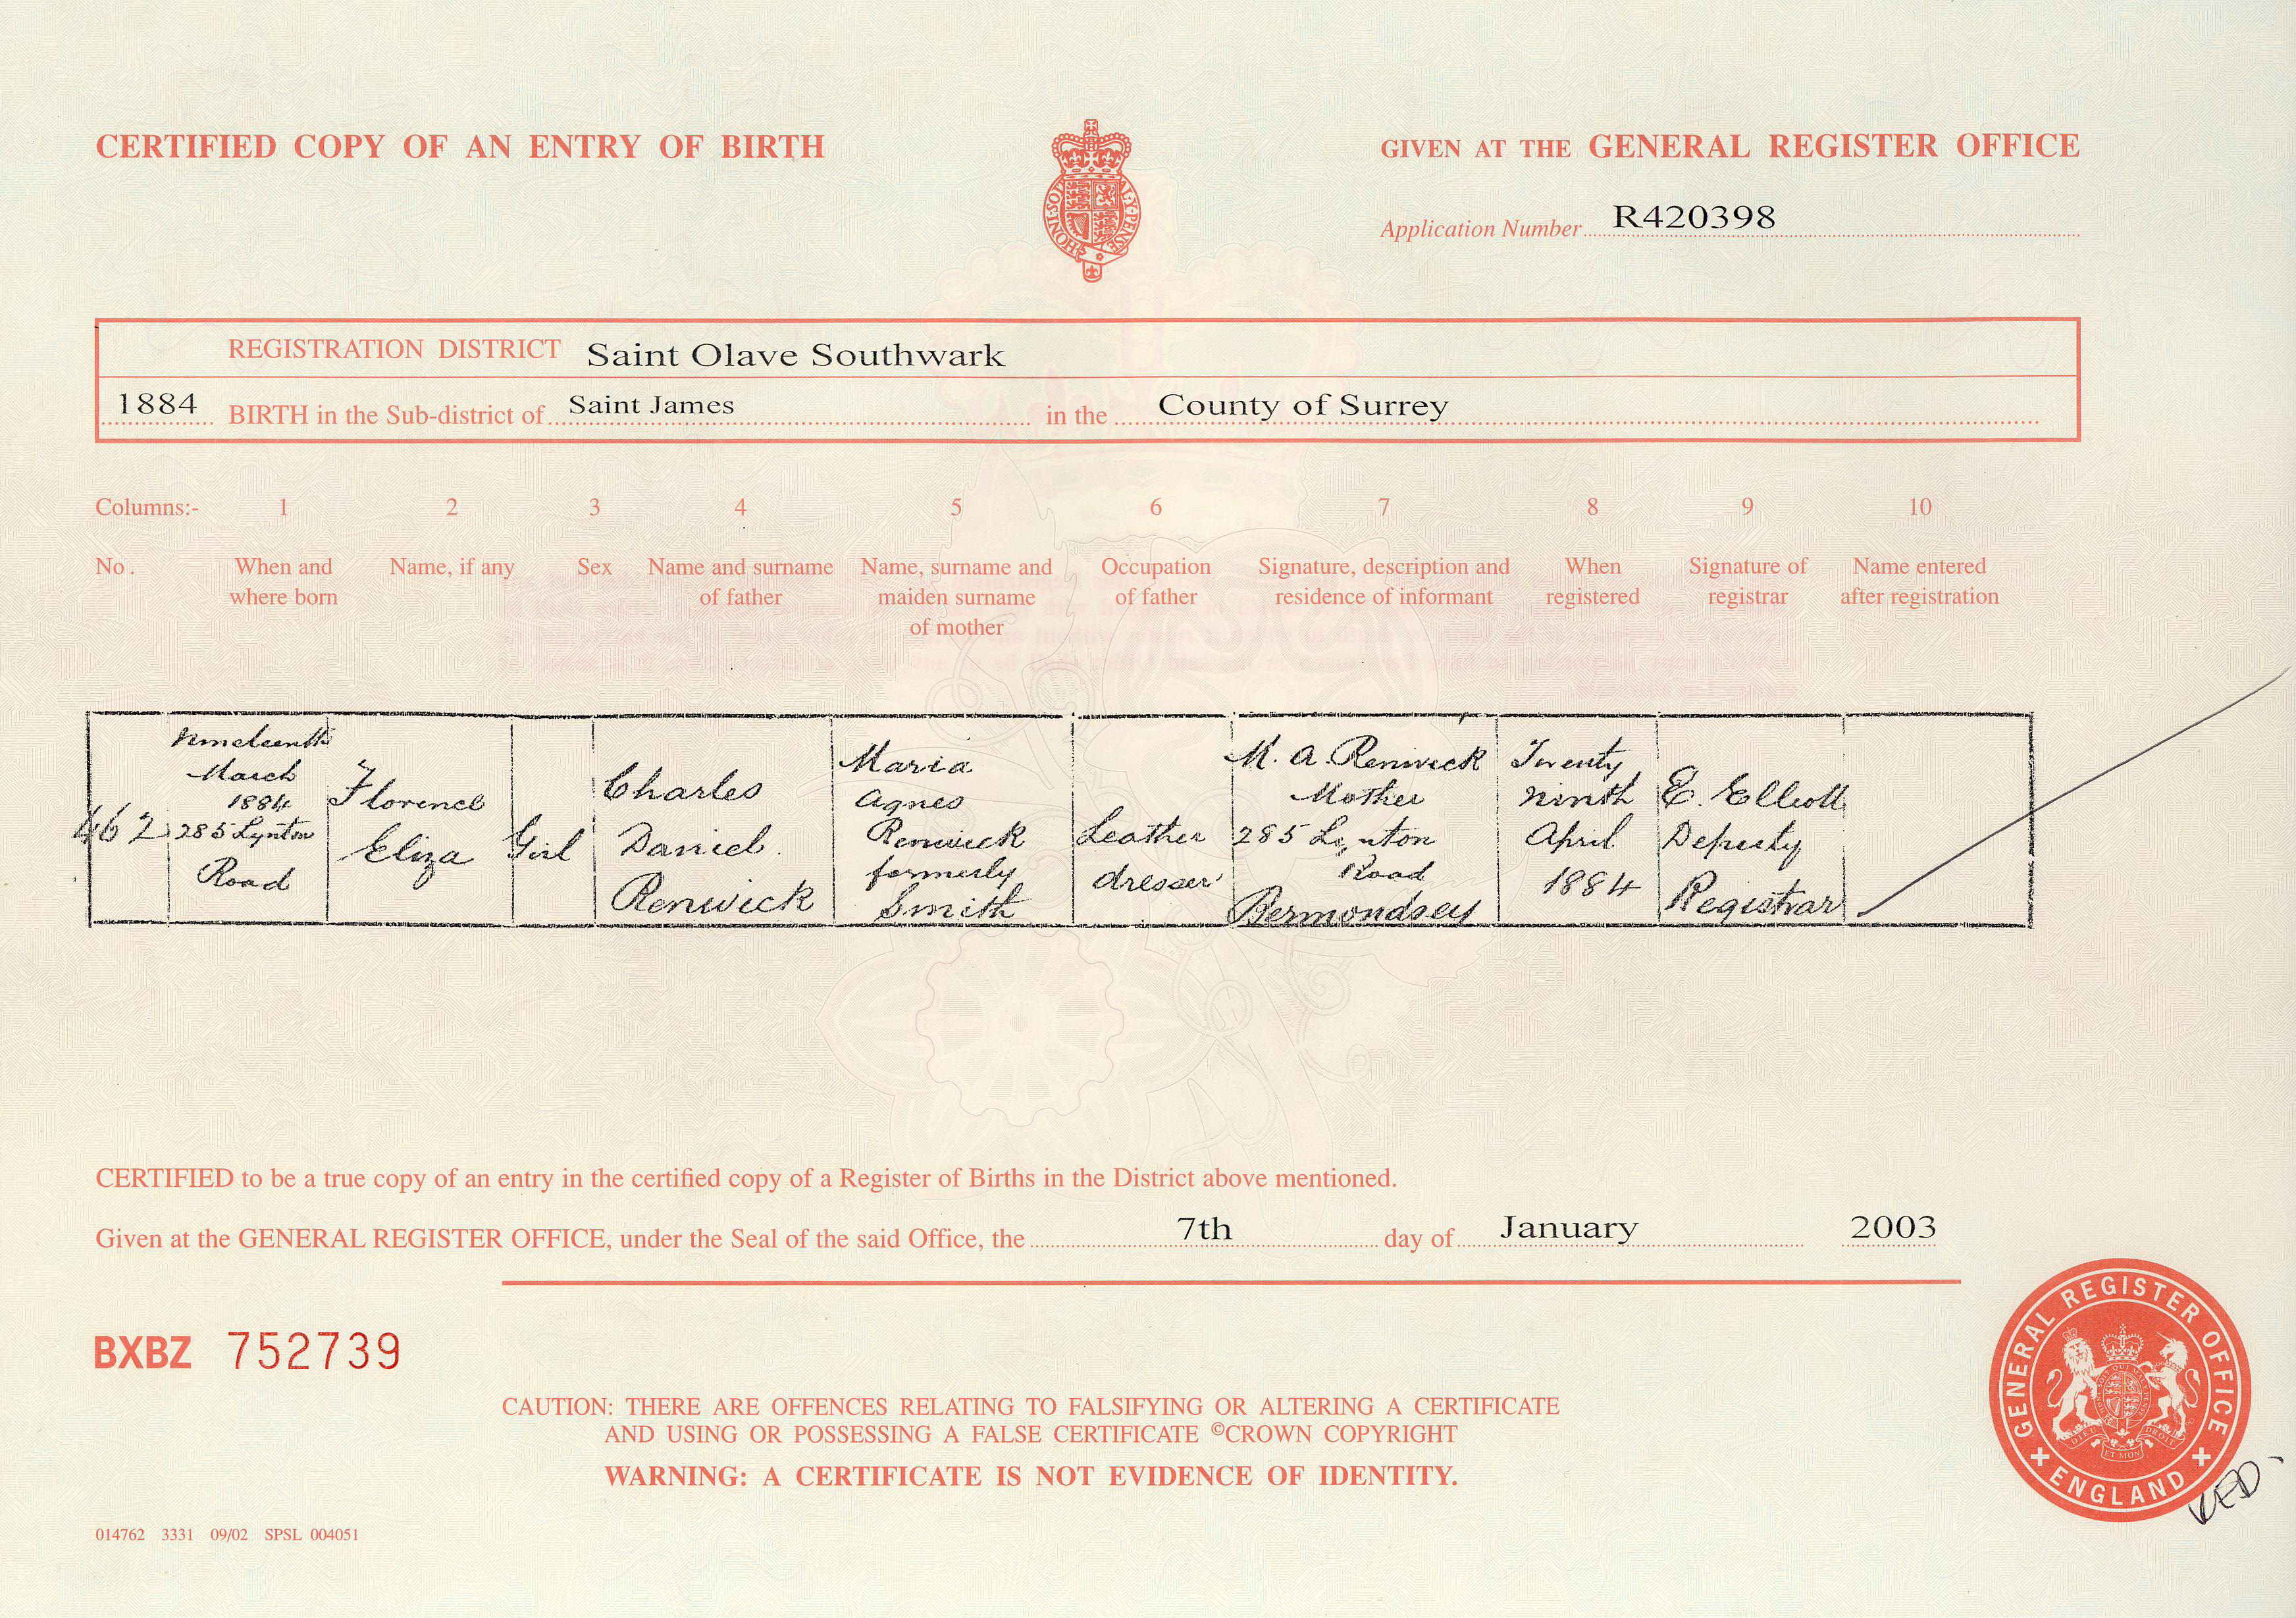 CERTIFIED COPY OF AN ENTRY OF BIRTH
GIVEN AT THE GENERAL REGISTER OFFICE
HONI·SOIT AL·Y·PENSE
Application Number R420398
REGISTRATION DISTRICT Saint Olave Southwark
1884 BIRTH in the Sub-district of Saint James in the County of Surrey
Columns:- 1 2 3 4 5 6 7 8 9 10
No. When and where born Name, if any Sex Name and surname of father Name, surname and maiden surname of mother Occupation of father Signature, description and residence of informant When registered Signature of registrar Name entered after registration
462
Nineteenth
March
1884
285 Lynton
Road
Florence
Eliza
Girl
Charles
Daniel
Renwick
Maria
Agnes
Renwick
formerly
Smith
Leather
dresser
M. A. Renwick
Mother
285 Lynton
Road
Bermondsey
Twenty
ninth
April
1884
E. Elliott
Deputy
Registrar
CERTIFIED to be a true copy of an entry in the certified copy of a Register of Births in the District above mentioned.
Given at the GENERAL REGISTER OFFICE, under the Seal of the said Office, the 7th day of January 2003
BXBZ 752739
CAUTION: THERE ARE OFFENCES RELATING TO FALSIFYING OR ALTERING A CERTIFICATE
AND USING OR POSSESSING A FALSE CERTIFICATE ©CROWN COPYRIGHT
WARNING: A CERTIFICATE IS NOT EVIDENCE OF IDENTITY.
GENERAL REGISTER OFFICE
ENGLAND
014762 3331 09/02 SPSL 004051